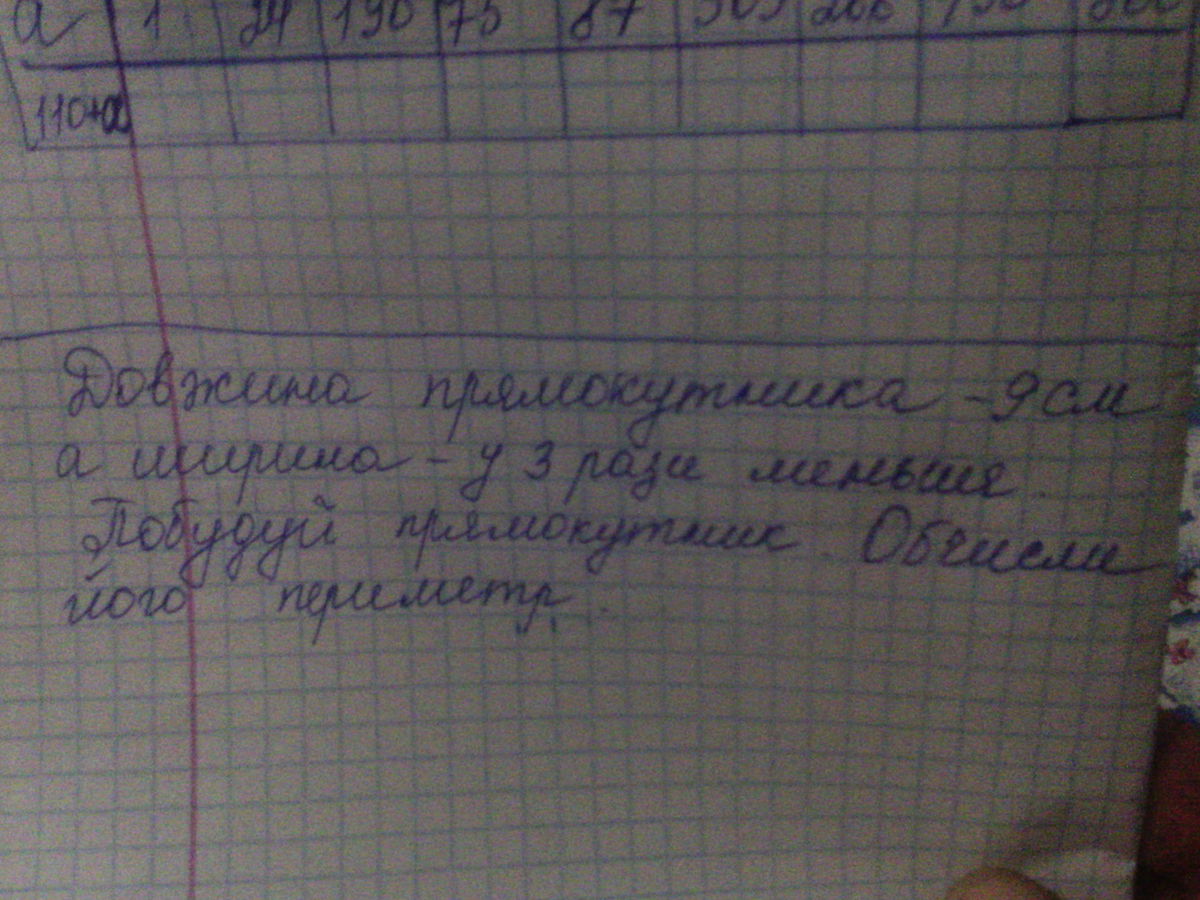 a 1 24 190 75 87
110+a
Довжина прямокутника - 9 см
а ширина - у 3 рази меньше.
Побудуй прямокутник. Обчисли
його периметр.